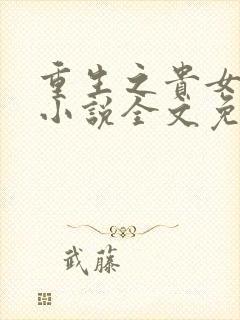 重生之貴女
小說全文免
武藤